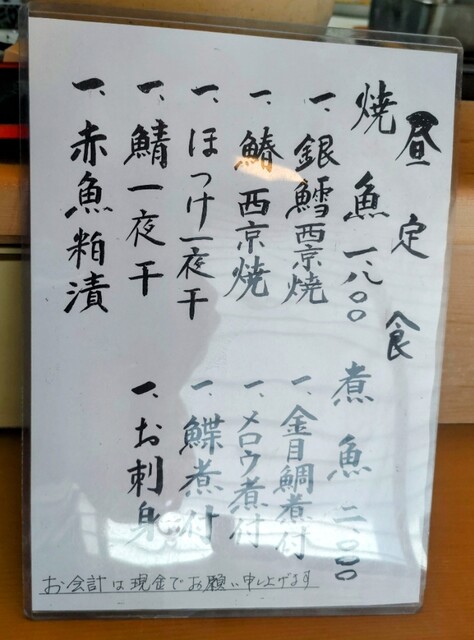 昼定食
焼魚 一、八〇〇
一、銀鱈西京焼
一、鰆西京焼
一、ほっけ一夜干
一、鯖一夜干
一、赤魚粕漬
煮魚 二、〇〇〇
一、金目鯛煮付
一、メロウ煮付
一、鰈煮付
一、お刺身
お会計は現金でお願い申し上げます